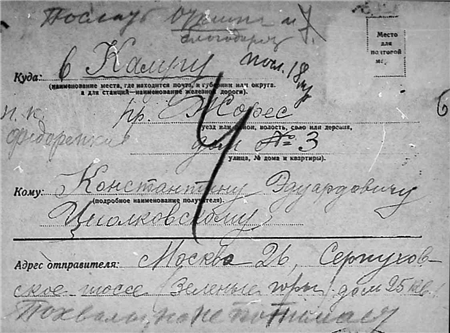 Послать
Место
для
почтовой
Куда: в Калугу пол. 18
(наименование места, где находится почта, и губернии или округа,
а для станций — наименование железной дороги).
пр. Жорес
уезд или район, волость, село или деревня,
дом № 3
улица, № дома и квартиры).
Кому: Константину Эдуардовичу
(подробное наименование получателя).
Циолковскому
Адрес отправителя: Москва 26, Серпухов-
ское шоссе (Зеленые горы) дом 25 кв